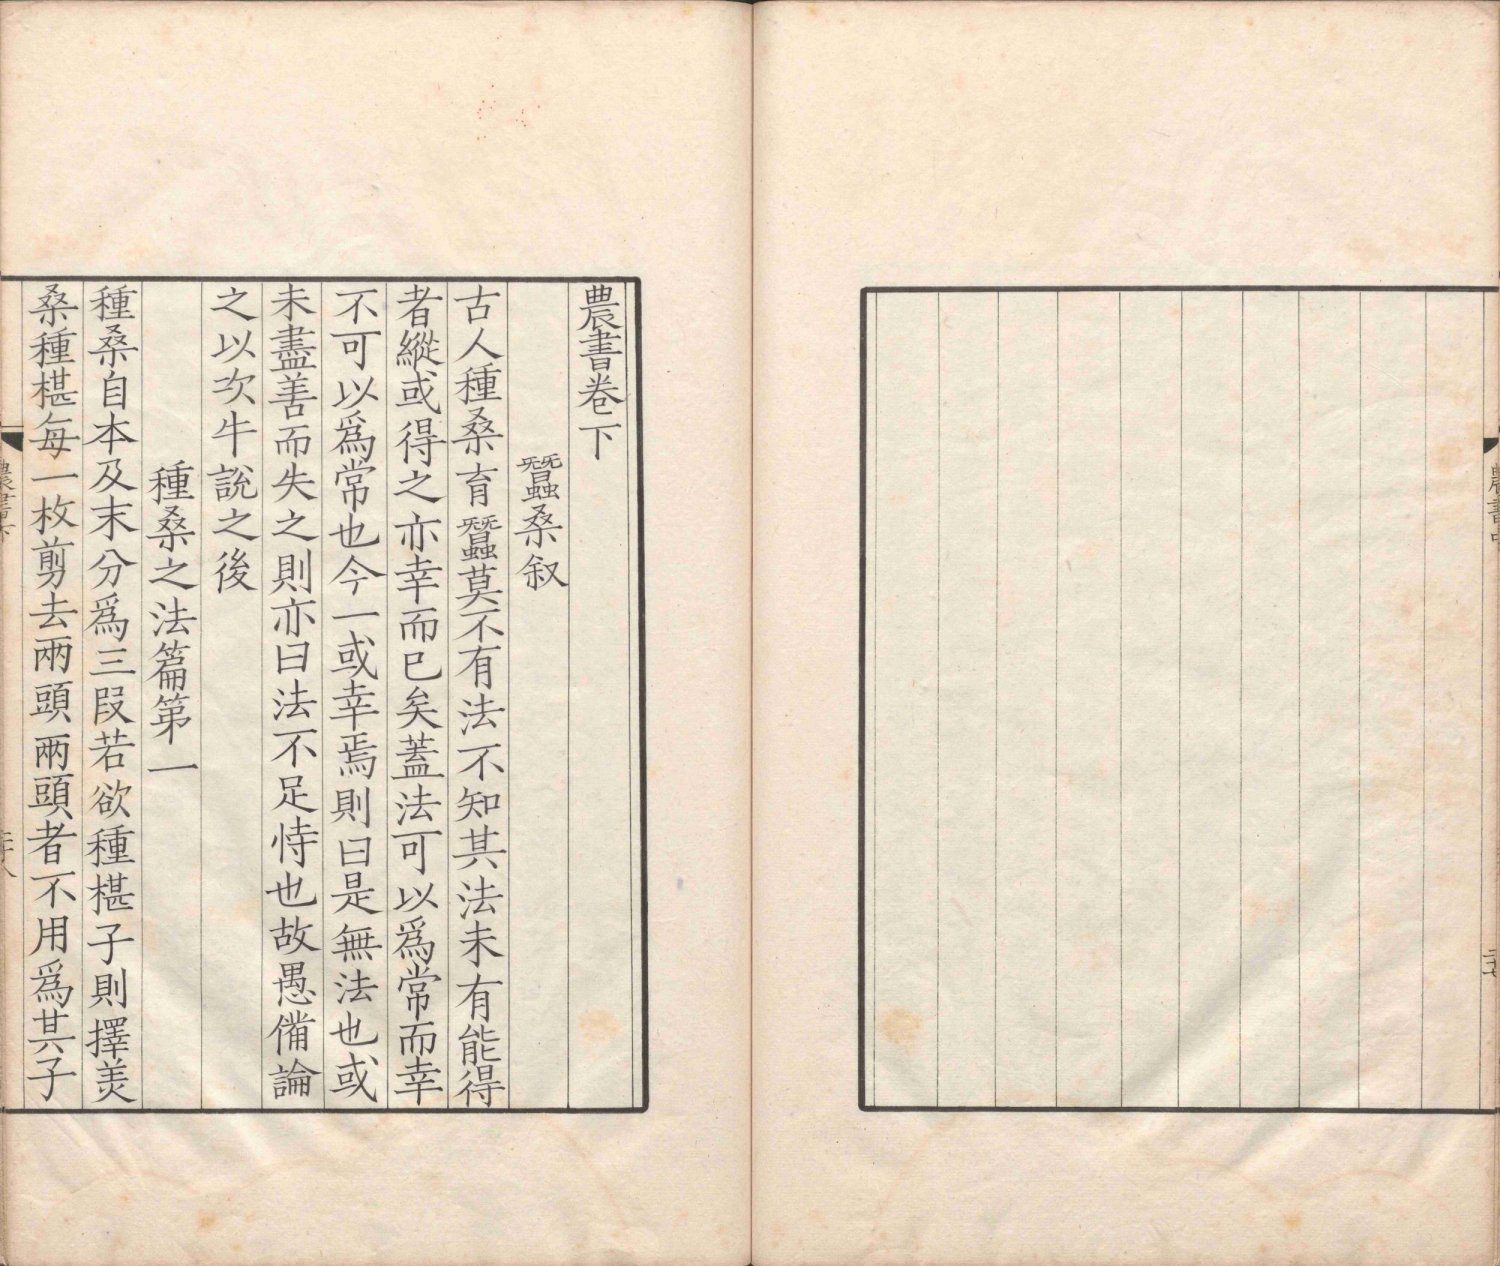 農書卷下
蠶桑叙
古人種桑育蠶莫不有法不知其法未有能得
者縱或得之亦幸而已矣蓋法可以爲常而幸
不可以爲常也今一或幸焉則曰是無法也或
未盡善而失之則亦曰法不足恃也故愚備論
之以次牛說之後
種桑之法篇第一
種桑自本及末分爲三段若欲種椹子則擇美
桑種椹每一枚剪去兩頭兩頭者不用爲其子